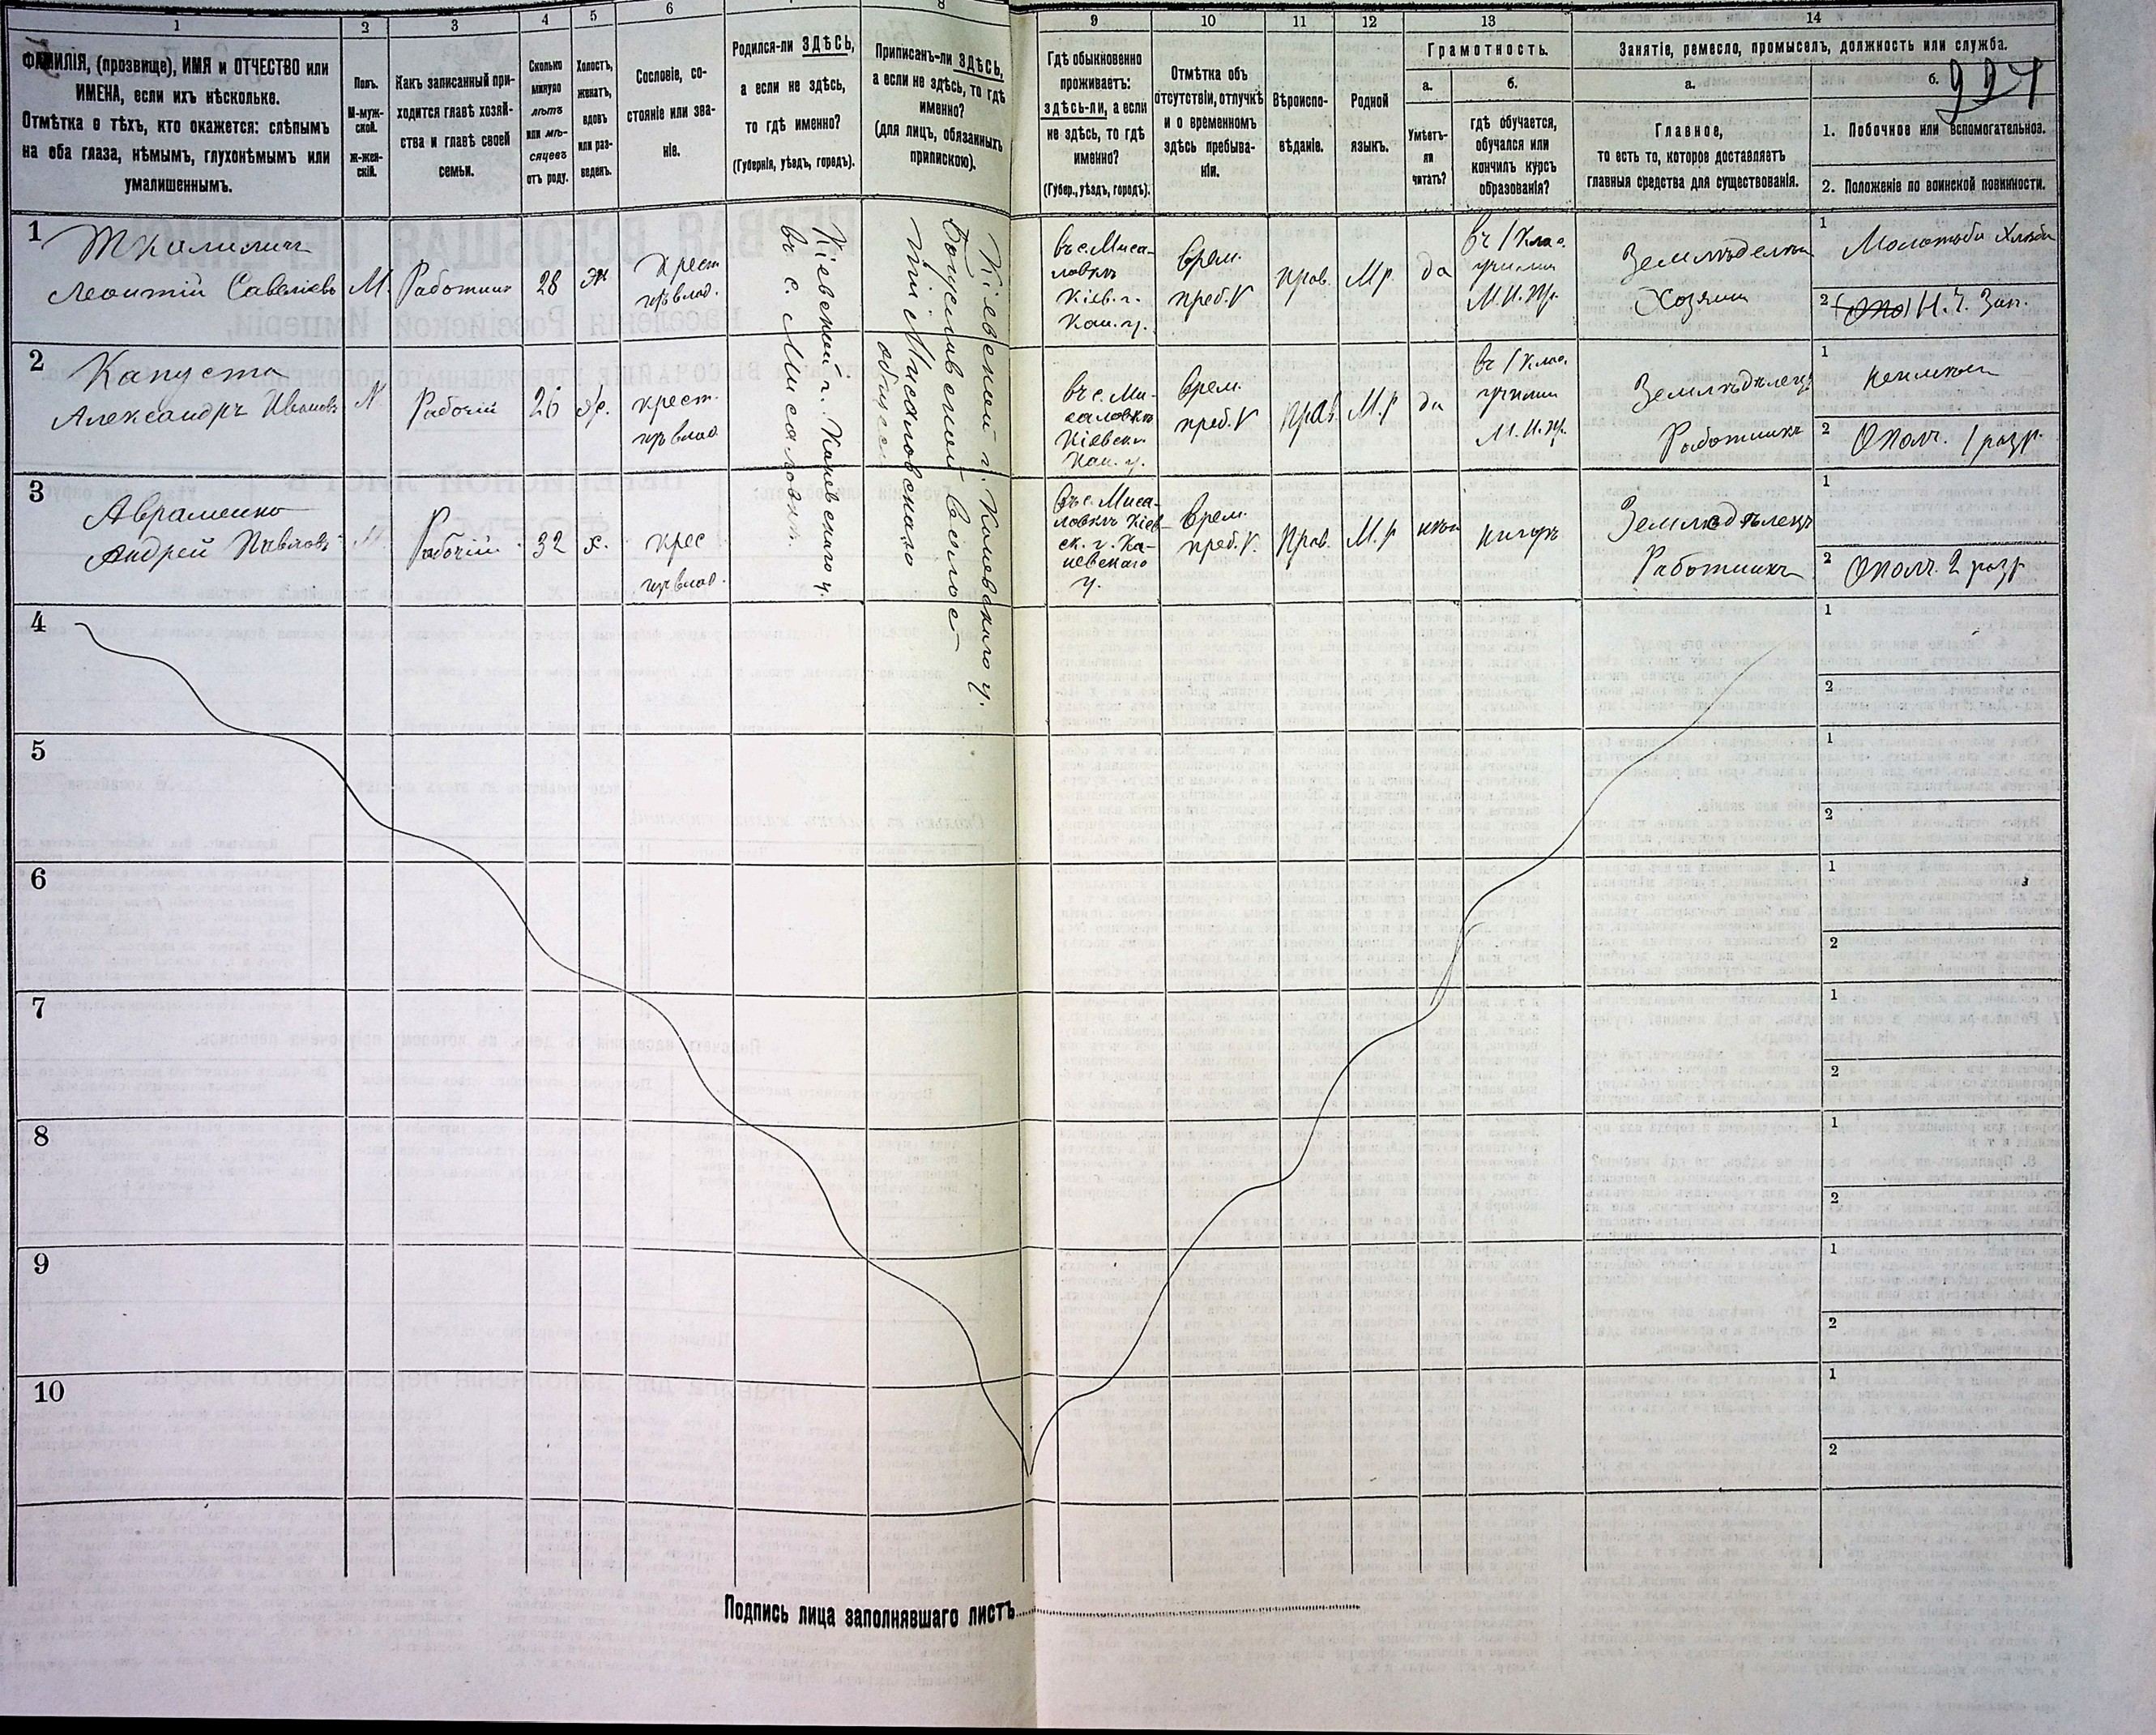 1
2
3
4
5
6
8
9
10
11
12
13
14
ФАМИЛІЯ, (прозвище), ИМЯ и ОТЧЕСТВО или
ИМЕНА, если ихъ нѣсколько.
Отмѣтка о тѣхъ, кто окажется: слѣпымъ
на оба глаза, нѣмымъ, глухонѣмымъ или
умалишеннымъ.
Полъ.
М-муж-
ской.
Ж-жен-
скій.
Какъ записанный при-
ходится главѣ хозяй-
ства и главѣ своей
семьи.
Сколько
минуло
лѣтъ
или мѣ-
сяцевъ
отъ роду.
Холостъ,
женатъ,
вдовъ
или раз-
веденъ.
Сословіе, со-
стояніе или зва-
ніе.
Родился-ли ЗДѢСЬ,
а если не здѣсь,
то гдѣ именно?
(Губернія, уѣздъ, городъ).
Приписанъ-ли ЗДѢСЬ,
а если не здѣсь, то гдѣ
именно?
(для лицъ, обязанныхъ
припискою).
Гдѣ обыкновенно
проживаетъ:
здѣсь-ли, а если
не здѣсь, то гдѣ
именно?
(Губер., уѣздъ, городъ).
Отмѣтка объ
отсутствіи, отлучкѣ
и о временномъ
здѣсь пребыва-
ніи.
Вѣроиспо-
вѣданіе.
Родной
языкъ.
Грамотность.
а.
Умѣетъ-
ли
читать?
б.
гдѣ обучается,
обучался или
кончилъ курсъ
образованія?
Занятіе, ремесло, промыселъ, должность или служба.
а.
Главное,
то есть то, которое доставляетъ
главныя средства для существованія.
б.
927
1. Побочное или вспомогательное.
2. Положеніе по воинской повинности.
1
Леонтій Савеліевъ
М.
Работник
28
Ж
крест
Кіевской г. Каневского у.
въ с. Мисаловкѣ.
Кіевской г. Каневского у.
Богуславской Волост
Мисаловского
общес
въ с. Миса-
ловкѣ
Кіев. г.
Кан. у.
Врем.
преб. V
Прав.
М.р.
да
въ 1 Клас.
училищ
М. Н. Пр.
Хозяин
1
2
2
Капуста
Александръ Ивановъ
Рабочій
26
крест.
въ с. Ми-
саловкѣ
Кіевск.
Кан. у.
Врем.
преб. V
Прав
М.р
да
въ 1 Клас.
училищ
М. Н. Пр.
Земледѣлец
Работникъ
1
2
Ополч. 1 разр.
3
Авраменко
Андрей Павловъ
Рабочій
32
х.
крес
въ с. Миса-
ловкѣ Кіев-
ск. г. Ка-
невскаго
у.
Врем.
преб. V.
Прав.
М.р
Земледѣлецъ
Работникъ
1
2
Ополч. 2 разр
4
1
2
5
1
2
6
1
2
7
1
2
8
1
2
9
1
2
10
1
2
Подпись лица заполнявшаго листъ